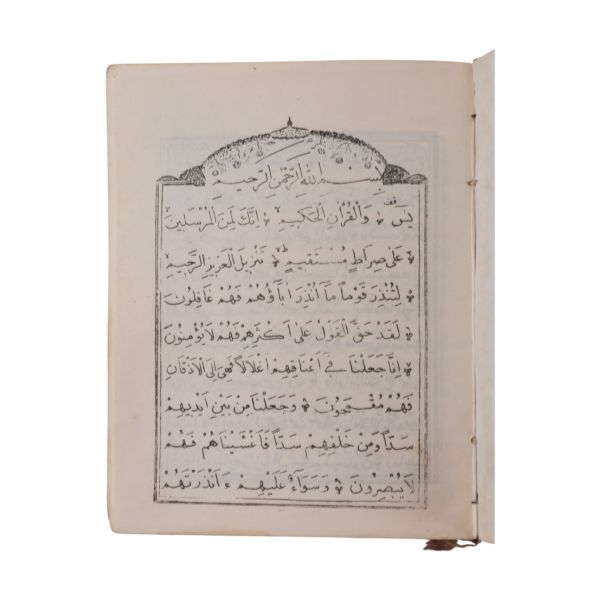 بِسْمِ اللهِ الرَّحْمٰنِ الرَّحِيمِ
يٰسٓ ۞ وَالْقُرْاٰنِ الْحَكِيمِ ۞ اِنَّكَ لَمِنَ الْمُرْسَلِينَ
۞ عَلٰى صِرَاطٍ مُسْتَقِيمٍ ۞ تَنْزِيلَ الْعَزِيزِ الرَّحِيمِ
۞ لِتُنْذِرَ قَوْمًا مَا اُنْذِرَ اٰبَاؤُهُمْ فَهُمْ غَافِلُونَ
۞ لَقَدْ حَقَّ الْقَوْلُ عَلٰى اَكْثَرِهِمْ فَهُمْ لَا يُؤْمِنُونَ
۞ اِنَّا جَعَلْنَا فِى اَعْنَاقِهِمْ اَغْلَالًا فَهِىَ اِلَى الْاَذْقَانِ
فَهُمْ مُقْمَحُونَ ۞ وَجَعَلْنَا مِنْ بَيْنِ اَيْدِيهِمْ
سَدًّا وَمِنْ خَلْفِهِمْ سَدًّا فَاَغْشَيْنَاهُمْ فَهُمْ
لَا يُبْصِرُونَ ۞ وَسَوَاءٌ عَلَيْهِمْ ءَاَنْذَرْتَهُمْ